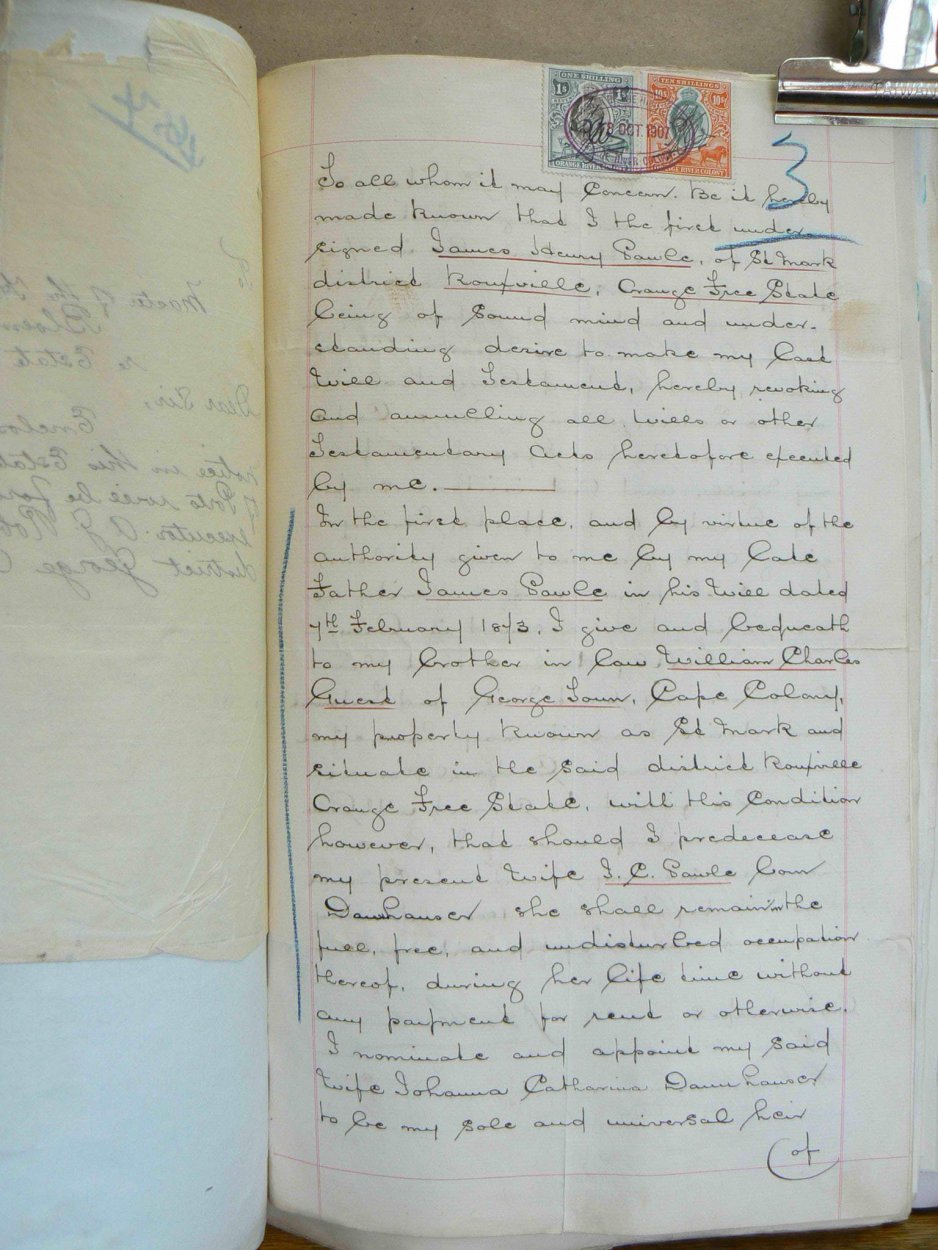 ONE SHILLING
1s
TEN SHILLINGS
10s
10s
OCT 1907
ORANGE RIVER COLONY
ORANGE RIVER COLONY
TAIWAN
3
To all whom it may Concern. Be it hereby
made known that I the first under-
signed James Henry Sawle, of St Mark
district Rouxville, Orange Free State
being of Sound mind and under-
standing desire to make my last
Will and Testament, hereby revoking
and annulling all Wills or other
Testamentary Acts heretofore executed
by me.
In the first place, and by virtue of the
authority given to me by my late
Father James Sawle in his Will dated
7th February 1873, I give and bequeath
to my brother in law William Charles
Guest of George Town, Cape Colony,
my property known as St Mark and
situate in the said district Rouxville
Orange Free State, with this Condition
however, that should I predecease
my present Wife J. C. Sawle born
Dannhauser she shall remain in the
full, free, and undisturbed occupation
thereof, during her life time without
any payment for rent or otherwise.
I nominate and appoint my Said
Wife Johanna Catharina Dannhauser
to be my sole and universal heir
of
Dear Sir,
re Estate
notice in this Estate
executor A J
district George